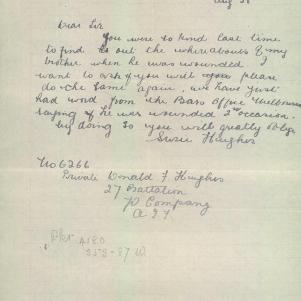 Aug 31
Dear Sir
You were so kind last time
to find us out the whereabouts of my
brother when he was wounded I
want to ask if you will again please
do the same again, we have just
had word from the Base Office Melbourne
saying of he was wounded 2nd occasion
by doing so you will greatly oblige
Susie Hughes
No 6266
Private Donald F Hughes
27 Battalion
D Company
A I F